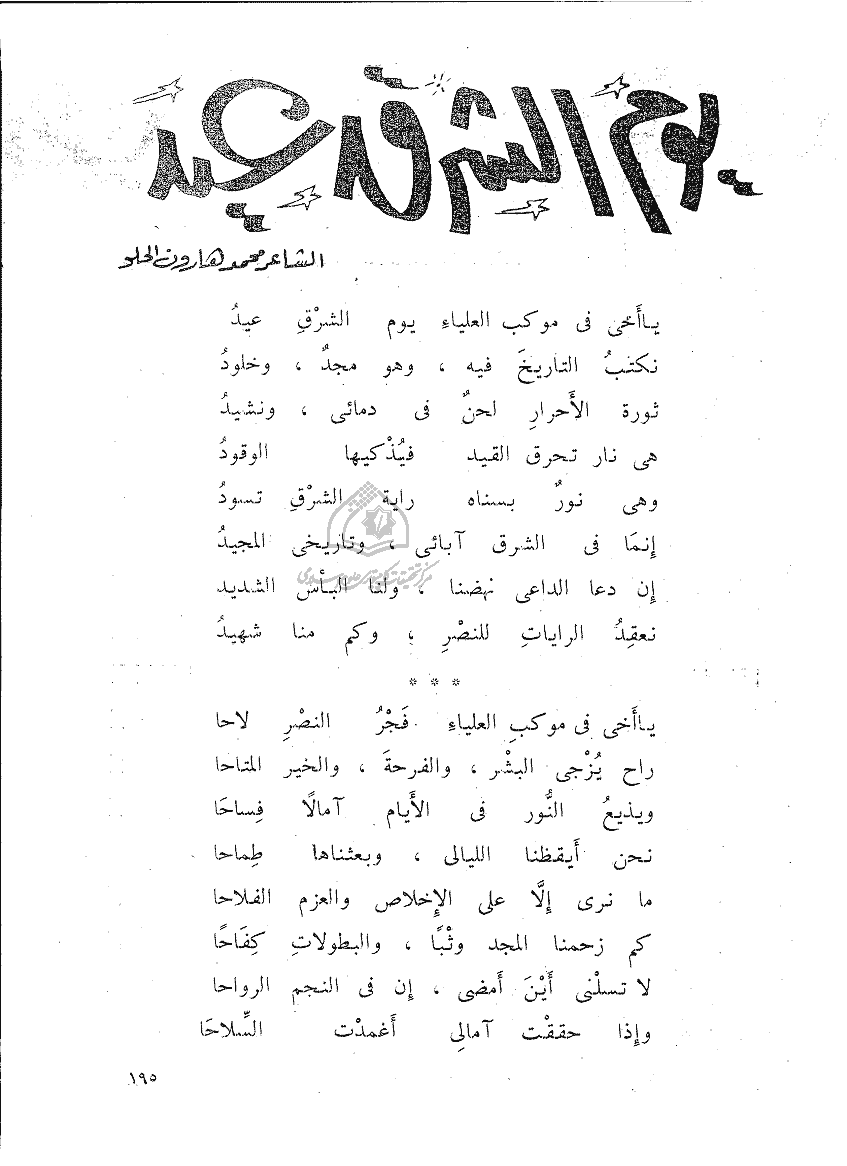 يوم الشرق عيد
الشاعر محمد هارون الحلو
يا أَخى فى موكب العلياءِ يوم الشرْقِ عيدُ
نكتبُ التاريخَ فيه ، وهو مجدٌ ، وخلودُ
ثورة الأَحرارِ لحنٌ فى دمائى ، ونشيدُ
هى نار تحرق القيد فيُذْكيها الوقودُ
وهى نورٌ بسناه راية الشرْقِ تسودُ
إِنمَا فى الشرق آبائى ، وتاريخى المجيدُ
إِن دعا الداعى نهضنا ، ولنا البأْس الشديد
نعقِدُ الرايات للنصْرِ ، وكم منا شهيدُ
* * *
يا أَخى فى موكبِ العلياءِ فَجْرُ النصْرِ لاحا
راح يُزْجى البشْر ، والفرحةَ ، والخير المتاحا
ويذيعُ النُّور فى الأَيام آمالًا فِساحَا
نحن أَيقظنا الليالى ، وبعثناها طِماحا
ما نرى إِلَّا على الإِخلاص والعزم الفلاحا
كم زحمنا المجد وثْبًا ، والبطولاتِ كِفَاحًا
لا تسلْنى أَيْنَ أَمضى ، إِن فى النجم الرواحا
وإِذا حققْت آمالِى أَغمدْت السِّلاحَا
١٩٥